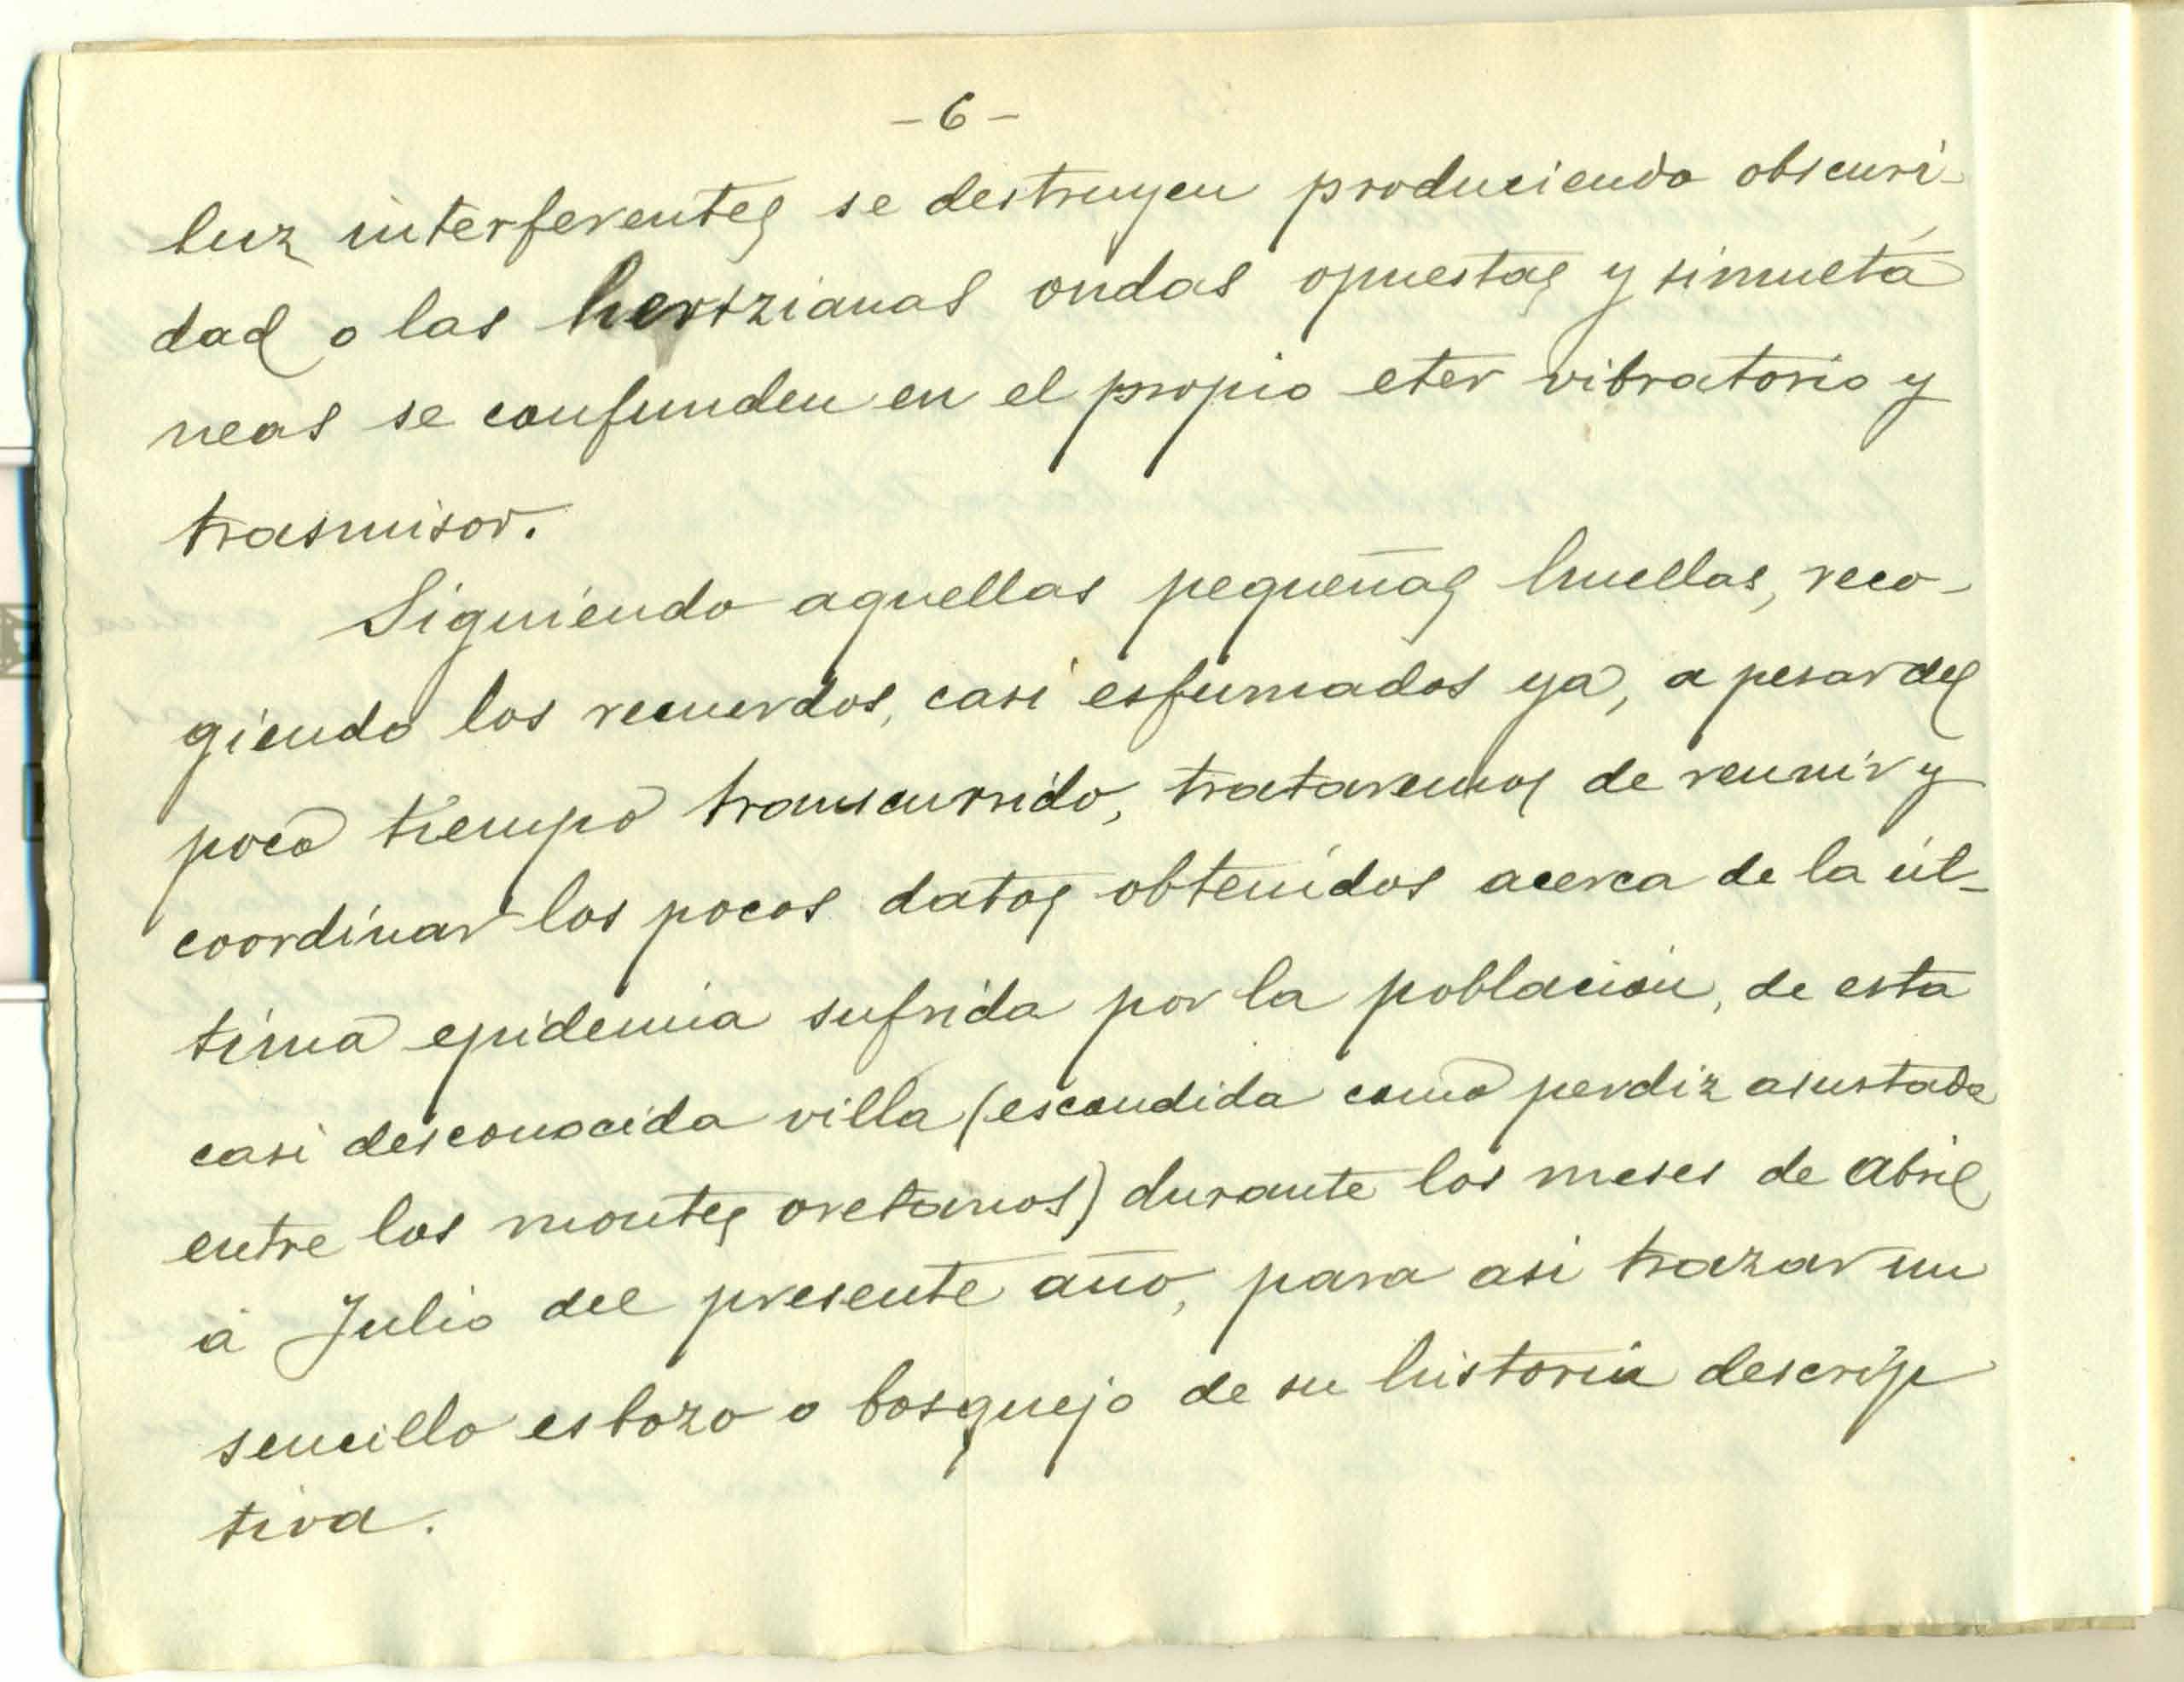 - 6 -
luz interferentes se destruyen produciendo obscuri-
dad o las hertzianas ondas opuestas y simultá
neas se confunden en el propio eter vibratorio y
trasmisor.
Siguiendo aquellas pequeñas huellas, reco-
giendo los recuerdos, casi esfumados ya, a pesar del
poco tiempo transcurrido, trataremos de reunir y
coordinar los pocos datos obtenidos acerca de la úl-
tima epidemia sufrida por la población, de esta
casi desconocida villa (escondida como perdiz asustada
entre los montes oretanos) durante los meses de Abril
á Julio del presente año, para asi trazar un
sencillo esbozo o bosquejo de su historia descrip
tiva.